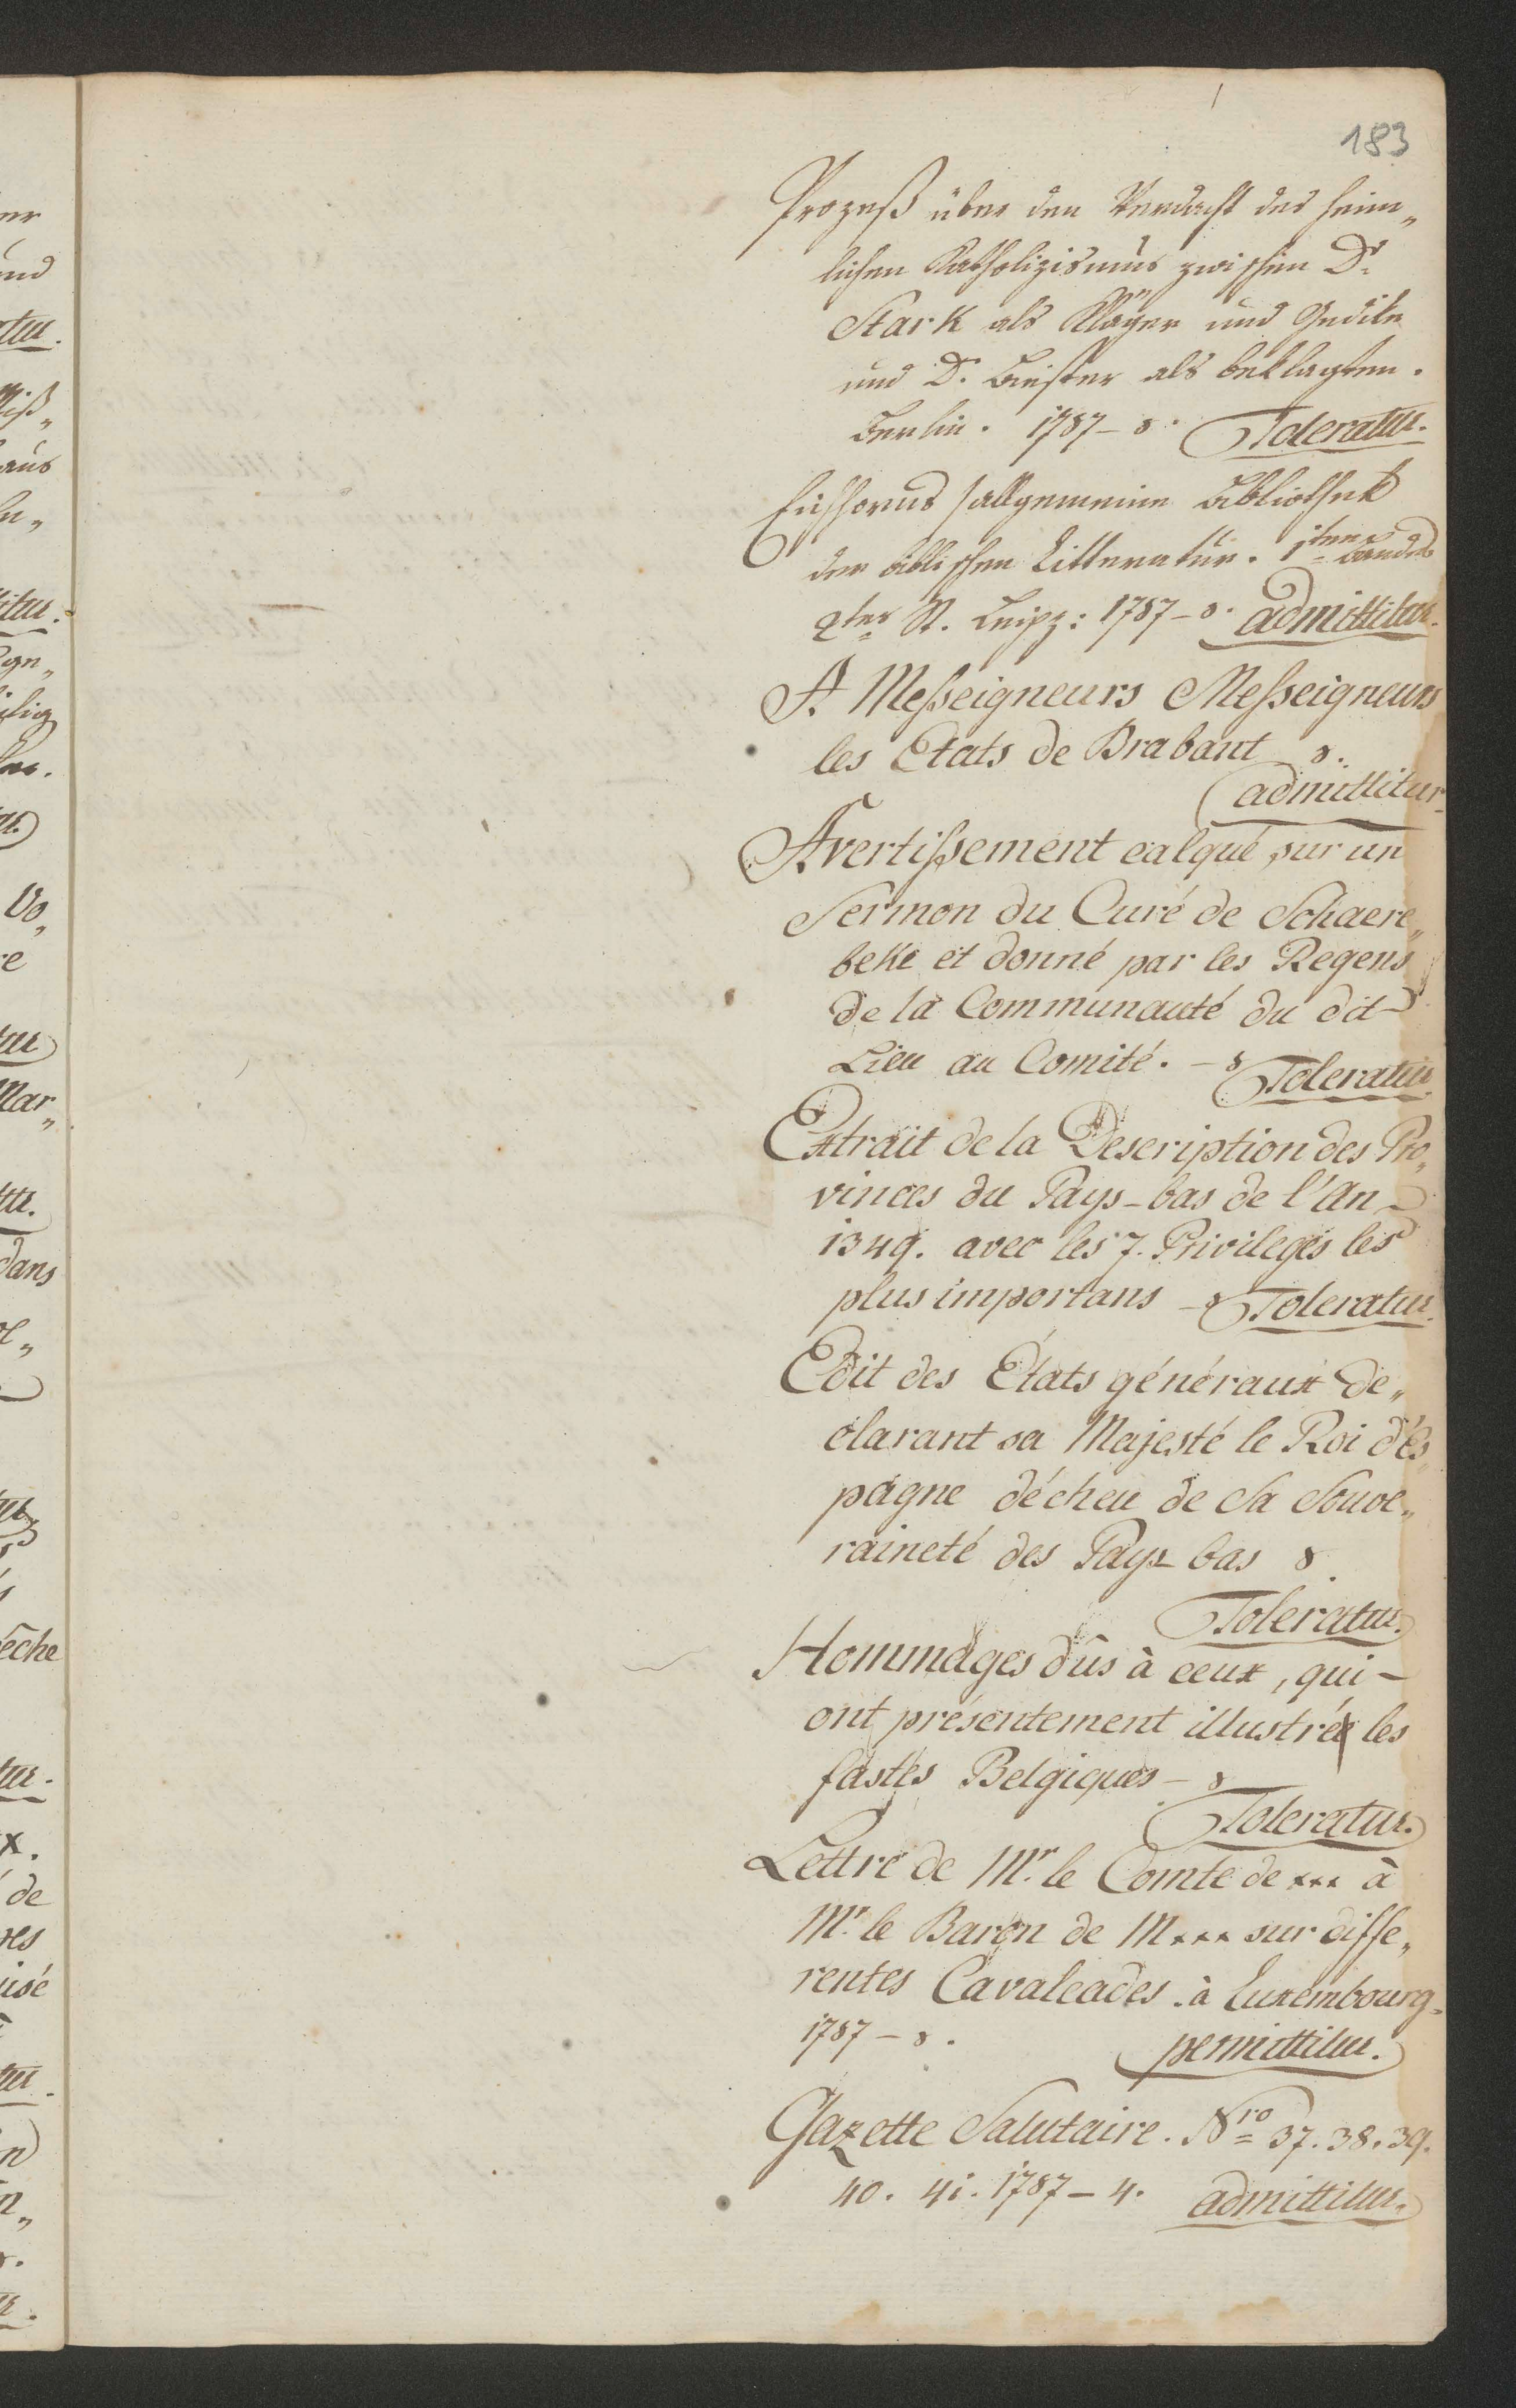 183
Prozeß über den Verdacht des heim„
lichen Katholizismus zwischen Dr.
Stark als Kläger und Gedike
und Dr. Biester als beklagten.
Berlin. 1787 – 8. Toleratur.
Eichhorns /allgemeine Bibliothek
der biblischen Litteratur. 1ten Bandes
2tes St. Leipz: 1787 – 8. admittitur.
A Messeigneurs Messeigneurs
les Etats de Brabant 8.
admittitur
Avertissement calqué sur un
Sermon du Curé de Schaere„
beke et donné par les Regens
de la Communauté du dit
Lieu au Comité. – 8 Toleratur.
Extrait de la Description des Pro„
vinces du Pays-bas de l'An
1349. avec les 7. Privileges les
plus importans – 8 Toleratur.
Edit des États généraux de„
clarant sa Majesté le Roi d'És„
pagne décheu de Sa Souve„
raineté des Pays-bas 8.
Toleratur.
Hommages dûs à ceux, qui –
ont présentement illustré les
fastes Belgiques – 8
Toleratur.
Lettre de Mr. le Comte de xxx à
Mr. le Baron de Mxxx sur diffe„
rentes Cavalcades. à Luxembourg.
1787 – 8. permittitur.
Gazette Salutaire. Nro 37. 38. 39.
40. 41. 1787 – 4. admittitur.